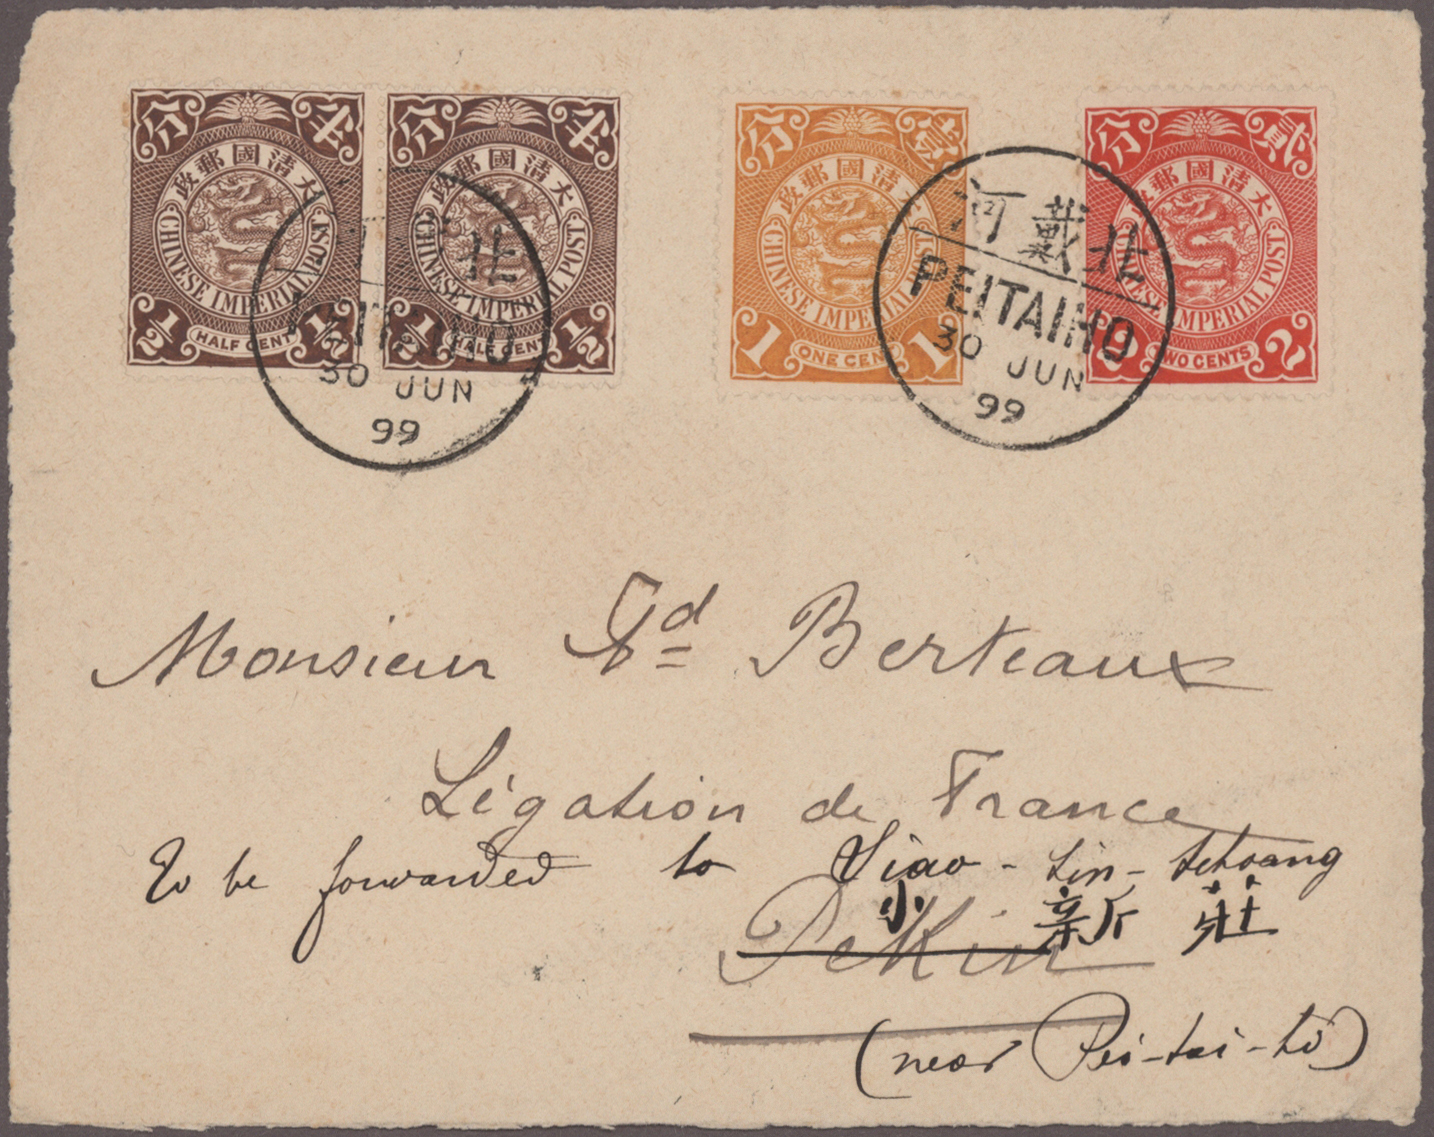 半分
大清國郵政
CHINESE IMPERIAL POST
½ HALF CENT ½
半分
大清國郵政
CHINESE IMPERIAL POST
½ HALF CENT ½
壹分
大清國郵政
CHINESE IMPERIAL POST
1 ONE CENT 1
貳分
大清國郵政
CHINESE IMPERIAL POST
2 TWO CENTS 2
北
PEITAIHO
30 JUN
99
北戴河
PEITAIHO
30 JUN
99
Monsieur Gd Berteaux
Légation de France
To be forwarded to Siao-sin-tchoang
小新莊
Pékin
(near Pei-tai-ho)